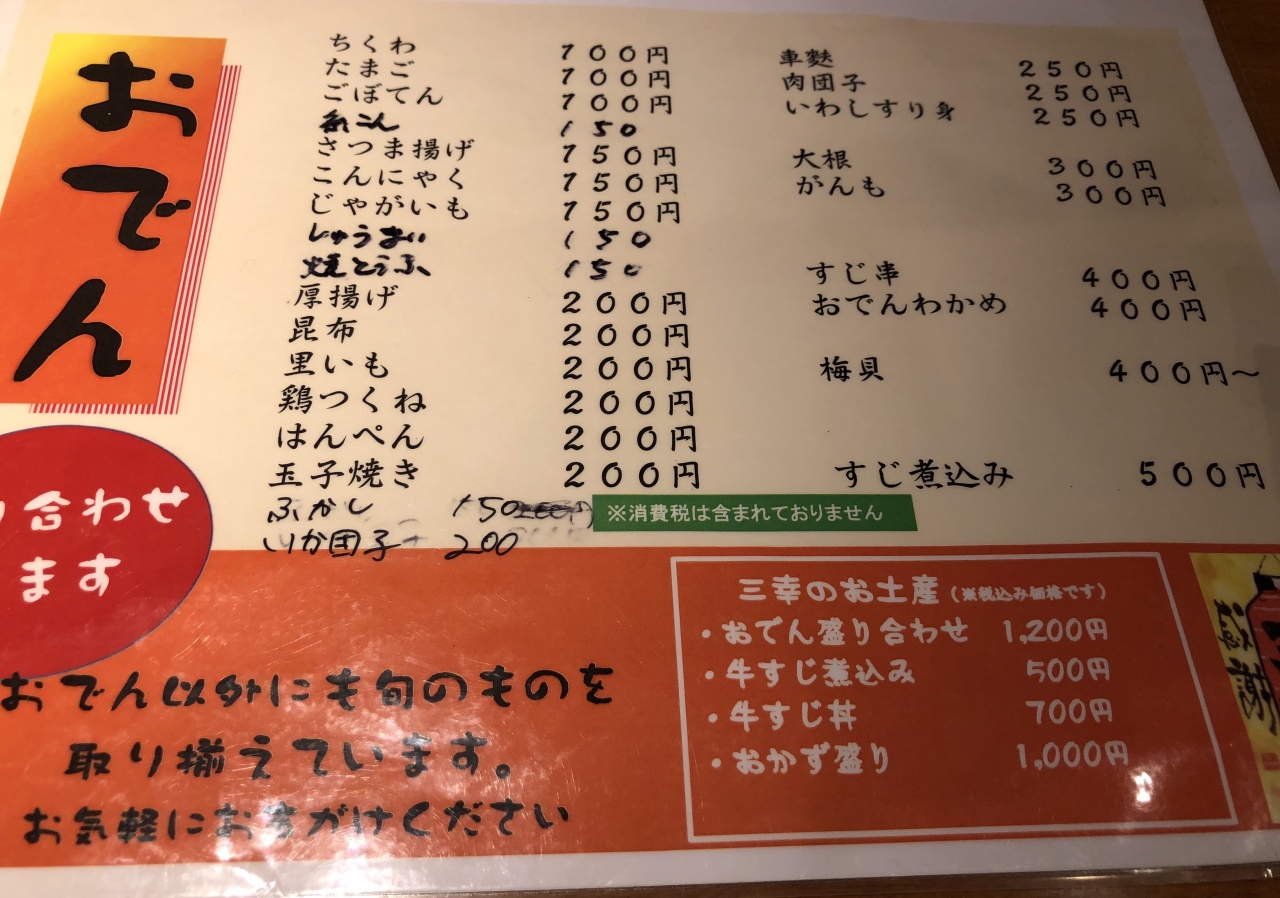 おでん
ちくわ 100円
たまご 100円
ごぼてん 100円
糸こん 150
さつま揚げ 150円
こんにゃく 150円
じゃがいも 150円
しゅうまい 150
焼とうふ 150
厚揚げ 200円
昆布 200円
里いも 200円
鶏つくね 200円
はんぺん 200円
玉子焼き 200円
ふかし 150
いか団子 200
車麩 250円
肉団子 250円
いわしすり身 250円
大根 300円
がんも 300円
すじ串 400円
おでんわかめ 400円
梅貝 400円〜
すじ煮込み 500円
※消費税は含まれておりません
り合わせ
ます
おでん以外にも旬のものを
取り揃えています。
お気軽にお声がけください
三幸のお土産(※税込み価格です)
・おでん盛り合わせ 1,200円
・牛すじ煮込み 500円
・牛すじ丼 700円
・おかず盛り 1,000円
感謝